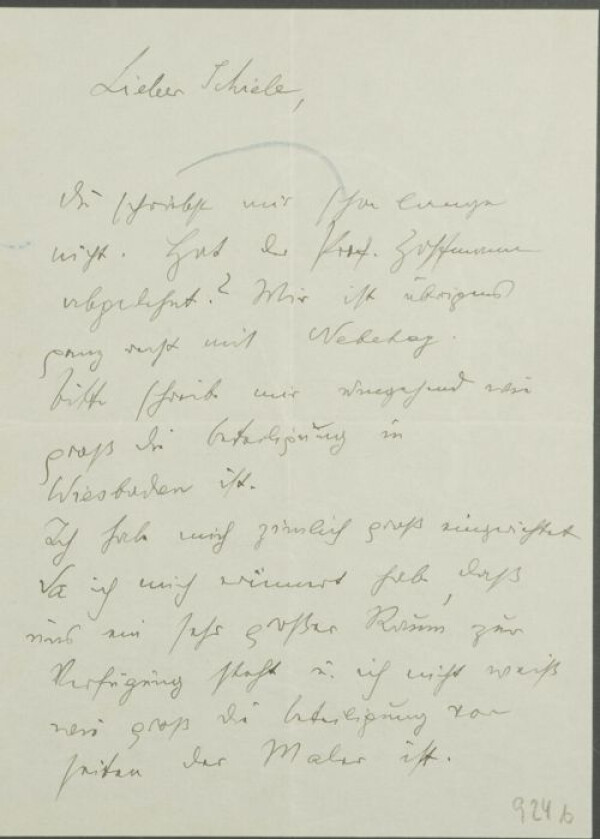 Lieber Schiele,
du schriebst mir schon lange
nicht. Hat der Prof. Hoffmann
abgelehnt? Mir ist übrigens
ganz recht mit Nebehay.
bitte schreibe mir umgehend wie
groß die beteiligung in
Wiesbaden ist.
Ich habe mich zimlich groß eingerichtet
da ich mich erinnert habe, daß
uns ein sehr großer Raum zur
Verfügung steht u. ich nicht weiß
wie groß die beteiligung von
seiten der Maler ist.
924 b